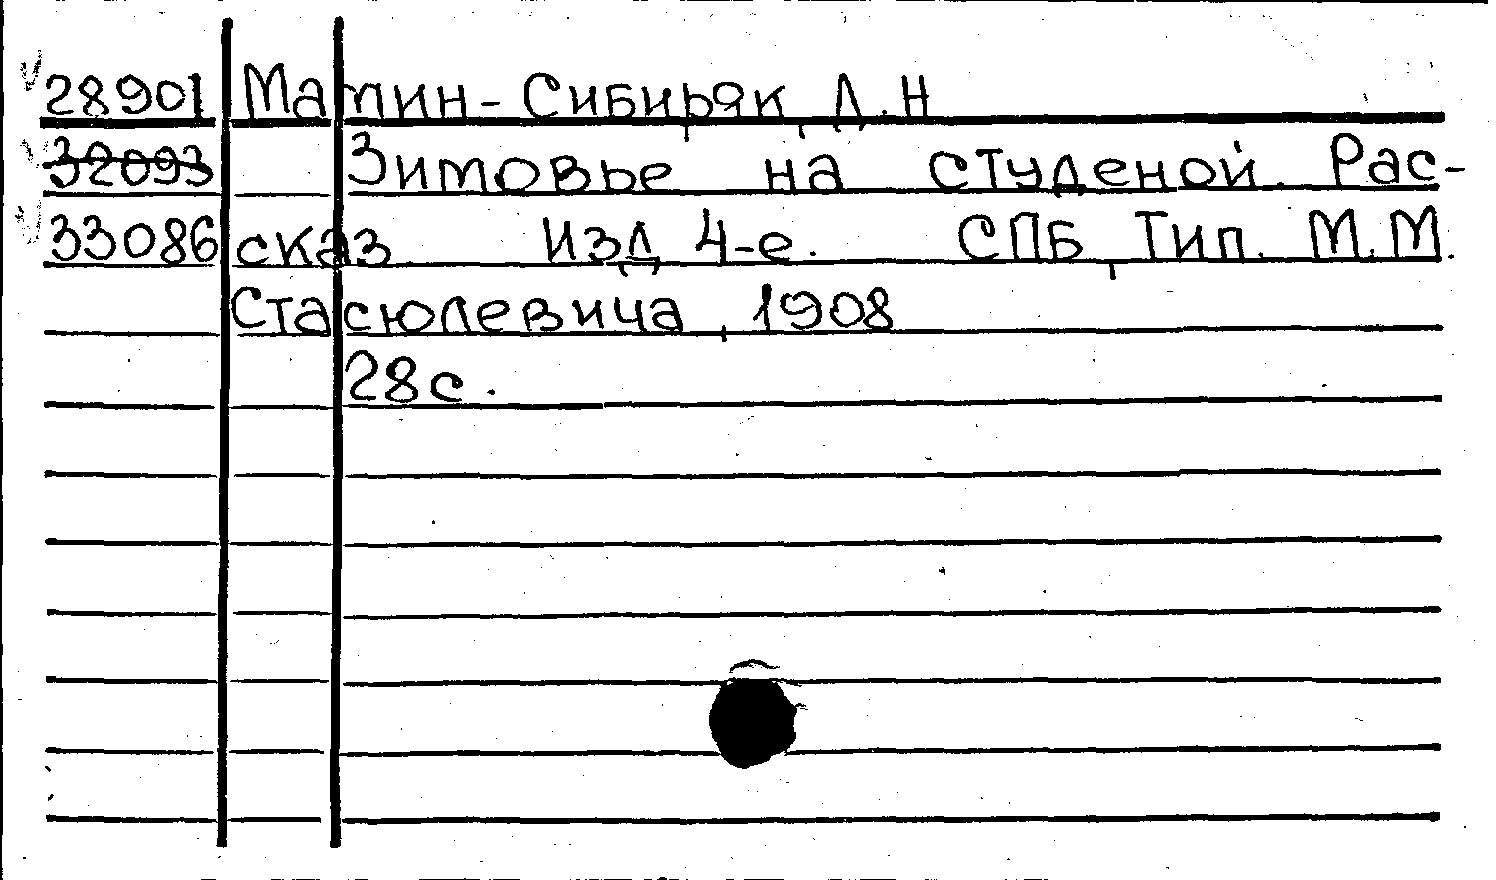 28901 Мамин-Сибиряк, Д.Н
32093 Зимовье на студеной. Рас-
33086 сказ. Изд 4-е. СПБ, Тип. М.М.
Стасюлевича, 1908
28с.